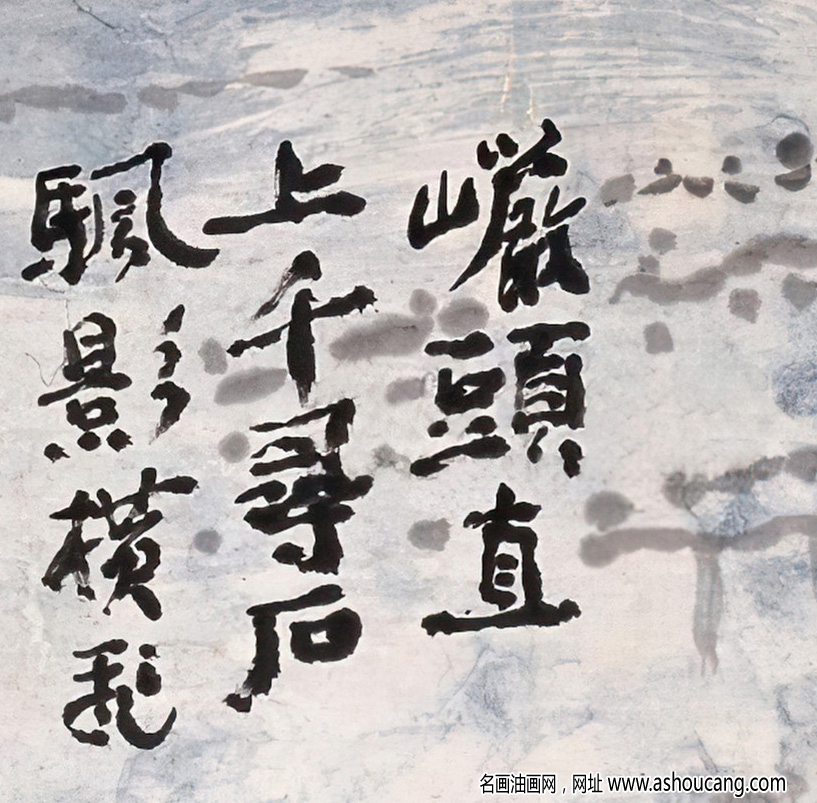 巗頭直
上千尋石
颿影橫飛
名画油画网，网址 www.ashoucang.com